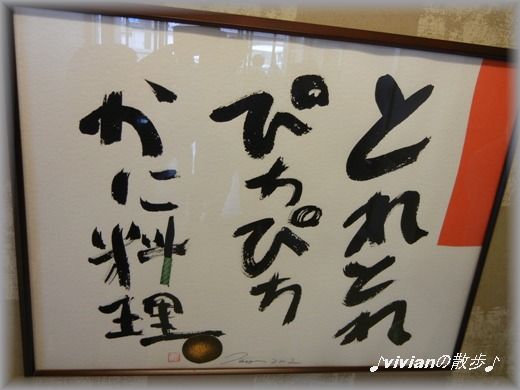 とれとれ
ぴちぴち
かに料理
♪vivianの散歩♪